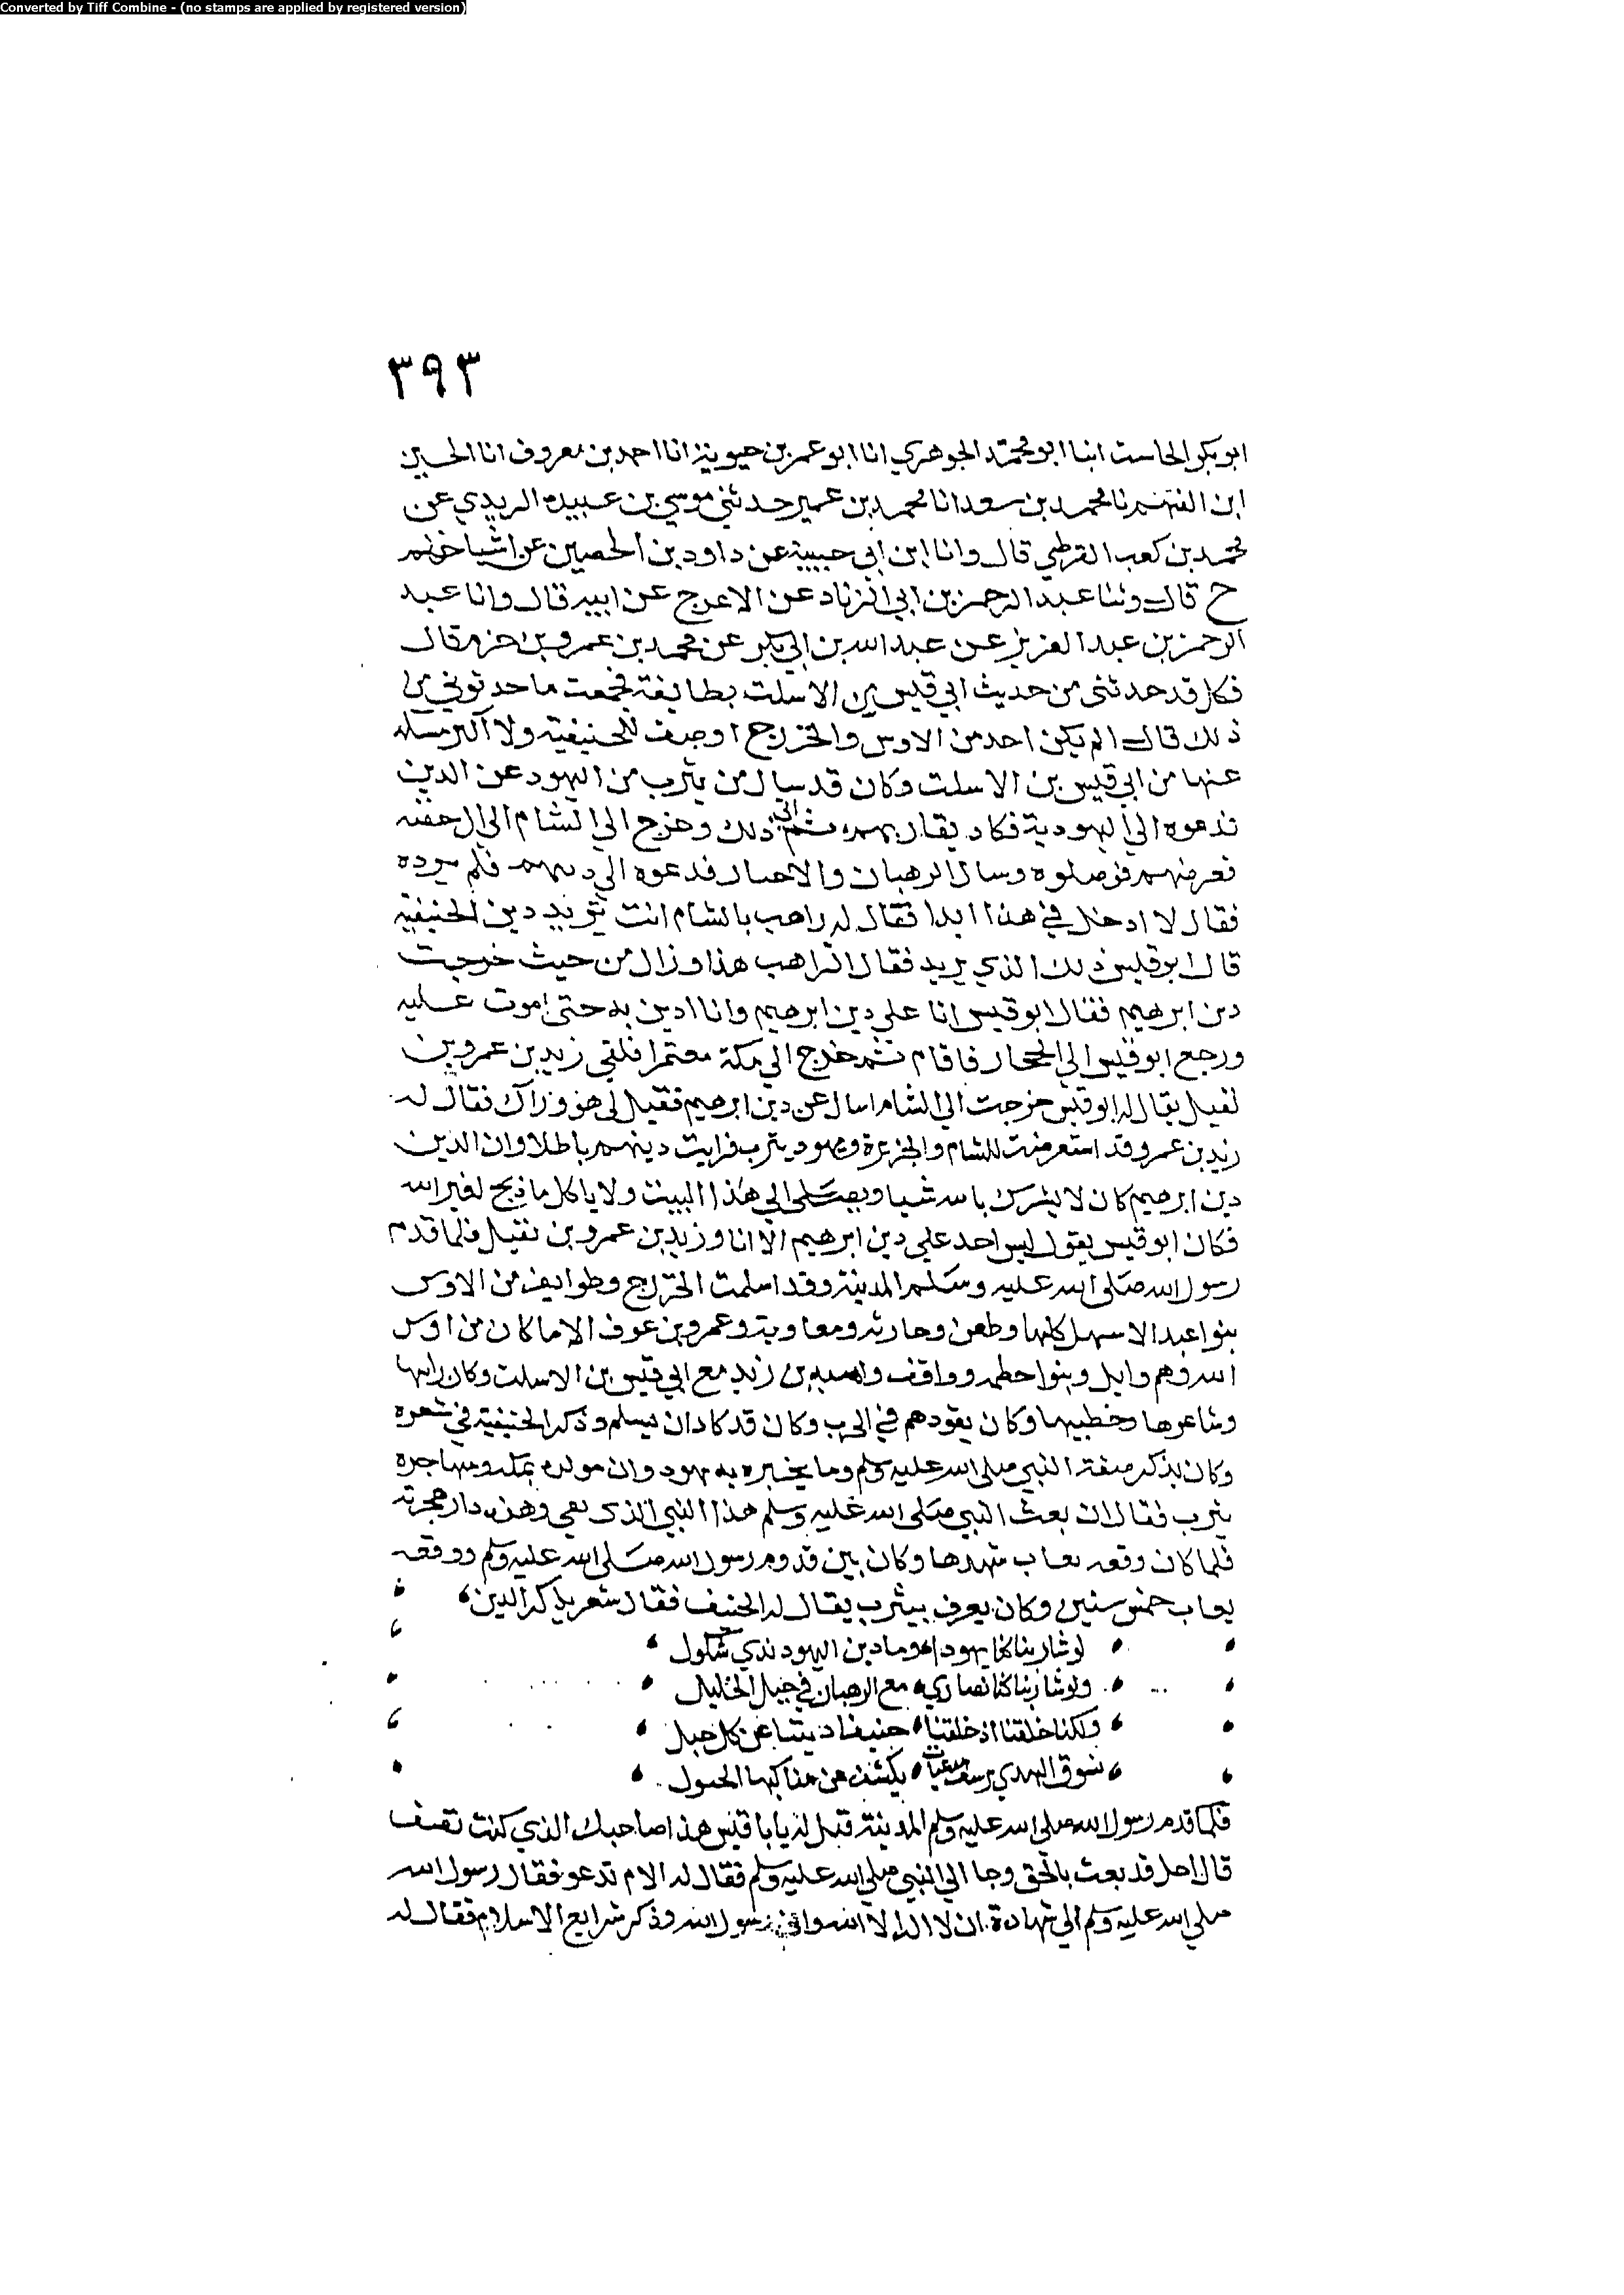 Converted by Tiff Combine - (no stamps are applied by registered version)
٣٩٣
ابو بكر الحاست انبا ابو محمد الجوهري انا ابو عمر بن حيوية انا احمد بن معروف انا الحسين
ابن الفهم نا محمد بن سعد انا محمد بن عمير حدثني موسى بن عبيده الربذي عن
محمد بن كعب القرظي قال وانا ابن ابي حبيبة عن داود بن الحصين عن اشياخهم
ح قال وثنا عبد الرحمن بن ابي الزناد عن الاعرج عن ابيه قال وانا عبد
الرحمن بن عبد العزيز عن عبد الله بن ابي بكر عن محمد بن عمرو بن حزم قال
فكل قد حدثني من حديث ابي قيس بن الاسلت بطايفة فجمعت ما حدثوني من
ذلك قال لم يكن احد من الاوس والخزرج اوصف للحنيفية ولا اكثر مساله
عنها من ابي قيس بن الاسلت وكان قد سال من يثرب من اليهود عن الدين
تدعوه الى اليهودية فكاد يقاربهم ثم ابى ذلك وخرج الى الشام الى ال جفنه
فعرضهم فوصلوه وسال الرهبان والاحبار فدعوه الى دينهم فلم يرده
فقال لا ادخل في هذا ابدا فقال له راهب بالشام انت تريد دين الحنيفية
قال ابو قيس ذلك الذي يريد فقال الراهب هذا وراك من حيث خرجت
دين ابرهيم فقال ابو قيس انا على دين ابرهيم وانا ادين به حتى اموت عليه
ورجع ابو قيس الى الحجاز فاقام ثم خرج الى مكة معتمرا فلقي زيد بن عمرو بن
نفيل يقال له ابو قيس خرجت الى الشام اسال عن دين ابرهيم فقيل لي هو وراك فقال له
زيد بن عمرو قد استعرضت للشام والجزيرة ويهود يثرب فرايت دينهم باطلا وان الدين
دين ابرهيم كان لا يشرك بالله شيا ويصلى الى هذا البيت ولا ياكل ما ذبح لغير الله
فكان ابو قيس يقول ليس احد على دين ابرهيم الا انا وزيد بن عمرو بن نفيل فلما قدم
رسول الله صلى الله عليه وسلم المدينة وقد اسلمت الخزرج وطوايف من الاوس
بنوا عبد الاسهل كلها وظفر وحارثه ومعاوية وعمرو بن عوف الا ما كان من اوس
الله وهم وايل وبنوا خطمه وواقف واميه بن زيد مع ابي قيس بن الاسلت وكان راسها
وشاعرها وخطيبها وكان يقودهم في الحرب وكان قد كاد ان يسلم وذكر الحنيفية في شعره
وكان يذكر صفة النبي صلى الله عليه وسلم وما يخبره به يهود وان مولده بمكه ومهاجره
يثرب فقال ان بعث النبي صلى الله عليه وسلم هذا النبي الذي بقي وهذه دار هجرته
فلما كان وقعه بعاث شهدها وكان بين قدوم رسول الله صلى الله عليه وسلم ووقعه
بعاث خمس سنين وكان يعرف بيثرب يقال له الحنيف فقال شعر يذكر الدين
لو شا ربنا كنا يهودا وما دين اليهود بذي شكول
ولو شا ربنا كنا نصارى مع الرهبان في جبل الخليل
ولكنا خلقنا اذ خلقنا حنيفا ديننا عن كل جيل
نسوق الهدي ترسف مذعنات يكشف عن مناكبها الحمول
فلما قدم رسول الله صلى الله عليه وسلم المدينة قيل له يا با قيس هذا صاحبك الذي كنت تصف
قال اجل قد بعث بالحق وجا الى النبي صلى الله عليه وسلم فقال له الام تدعو فقال رسول الله
صلى الله عليه وسلم الى شهادة ان لا اله الا الله واني رسول الله وذكر شرايع الاسلام فقال له